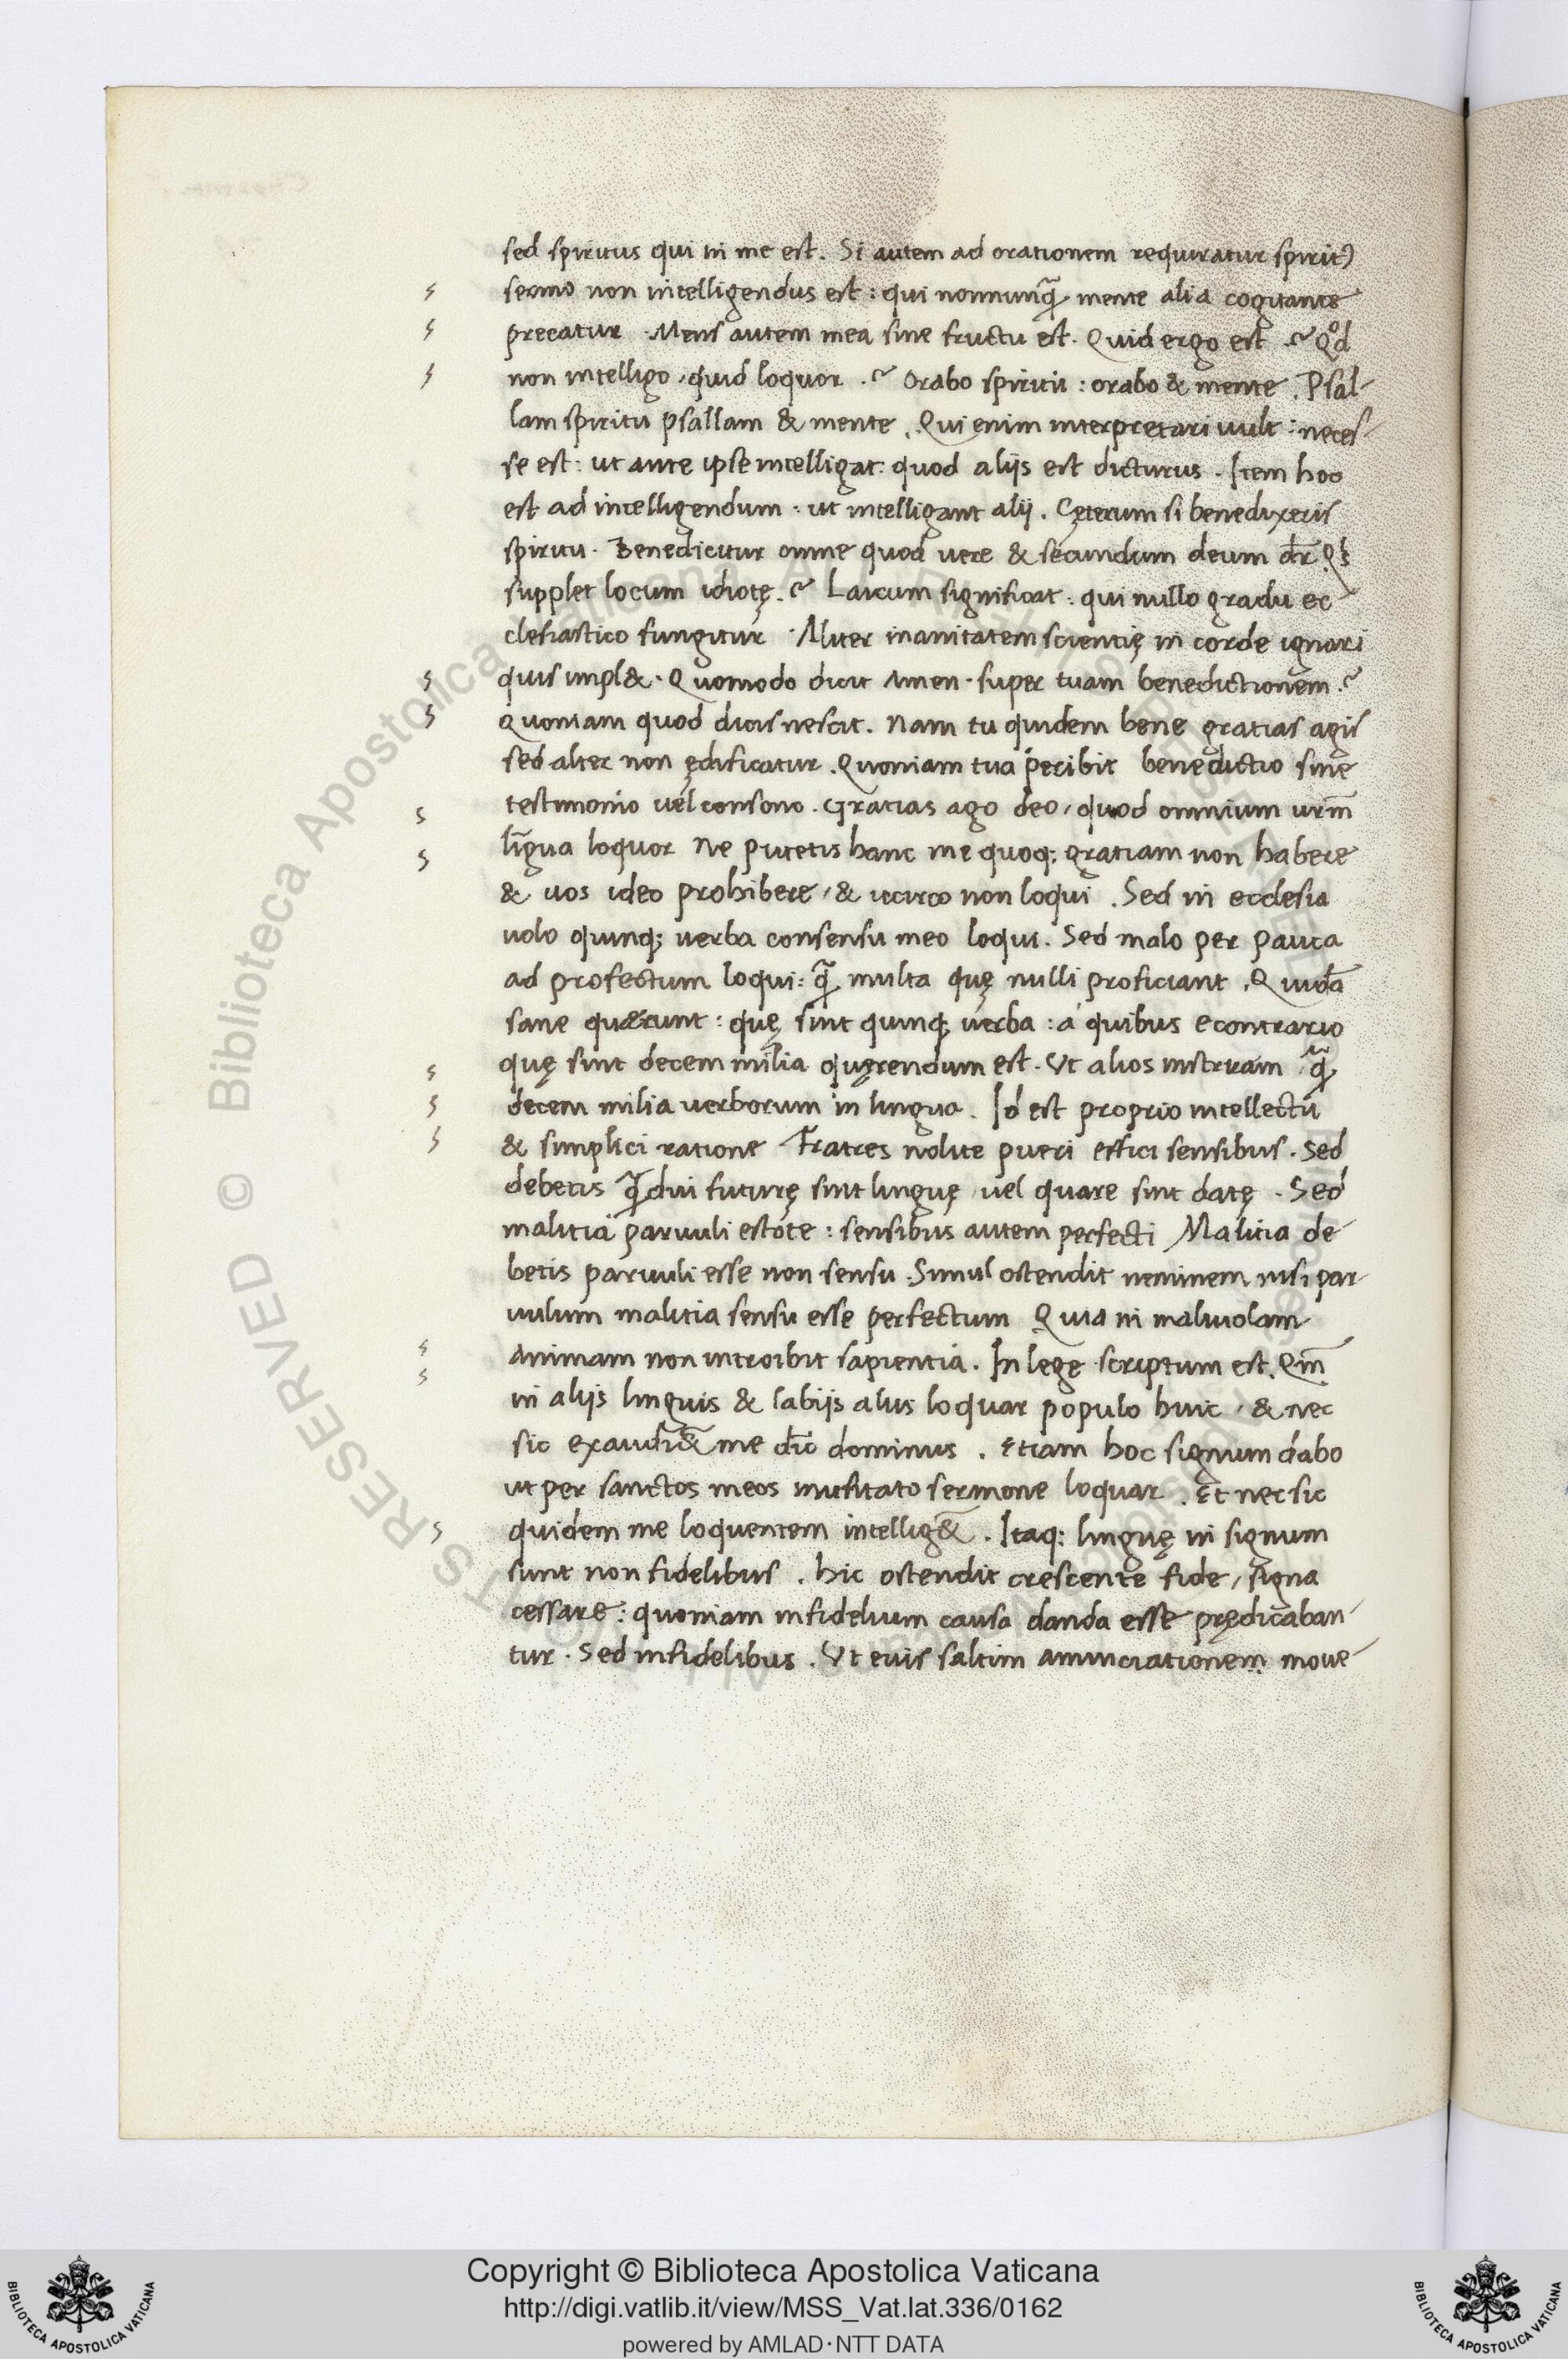 sed spiritus qui in me est. Si autem ad orationem requiratur spiritꝰ
sermo non intelligendus est : qui nonnunq̃ mente alia cogitante
precatur . Mens autem mea sine fructu est. Quid ergo est .~ Qd
non intelligo, quid loquor .~ Orabo spiritu : orabo & mente . Psal-
lam spiritu psallam & mente . Qui enim interpretari uult : neces-
se est: ut ante ipse intelligat: quod alijs est dicturus . Item hoc
est ad intelligendum : ut intelligant alij . Cęterum si benedixeris
spiritu . Benedicitur omne quod vere & secundum deum dr̄
supplet locum idiotę .~ Laicum significat : qui nullo gradu ec
clesiastico fungitur . Aliter inanitatem scientię in corde ignari
quis impl&. Quomodo dicit Amen . super tuam benedictionem .~
Quoniam quod dicis nescit. Nam tu quidem bene gratias agis
sed alter non ędificatur . Quoniam tua peribit benedictio sine
testimonio uel consono . Gratias ago deo, quod omnium urm̄
līgua loquor Ne putetis hanc me quoq; gratiam non habere
& uos ideo prohibere, & iccirco non loqui . Sed in ecclesia
uolo quinq; uerba consensu meo loqui. Sed malo per pauca
ad profectum loqui: q̃ multa quę nulli proficiant . Quidā
sane quærunt : quę sint quinq; uerba : a quibus econtrario
quę sint decem milia quęrendum est. Ut alios instruam q̃
decem milia uerborum in lingua . Id est proprio intellectu
& simplici ratione Fratres nolite pueri effici sensibus . Sed
debetis q̃diu futurę sint linguę uel quare sint datę . Sed
malitia paruuli estote : sensibus autem perfecti Malitia de-
betis paruuli esse non sensu . Simul ostendit neminem nisi par-
uulum malitia sensu esse perfectum Quia in maliuolam
animam non introibit sapientia. In lege scriptum est. Qm̄
in alijs linguis & labijs aliis loquar populo huic, & nec
sic exaudi&̄ me dic̄ dominus . Etiam hoc signum dabo
ut per sanctos meos inusitato sermone loquar . Et nec sic
quidem me loquentem intellig&̄ . Itaq; linguę in signum
sunt non fidelibus . Hic ostendit crescente fide, signa
cessare : quoniam infidelium causa danda esse prędicaban-
tur . Sed infidelibus . Ut euis saltim annunciationem moue-
Copyright © Biblioteca Apostolica Vaticana
http://digi.vatlib.it/view/MSS_Vat.lat.336/0162
powered by AMLAD·NTT DATA